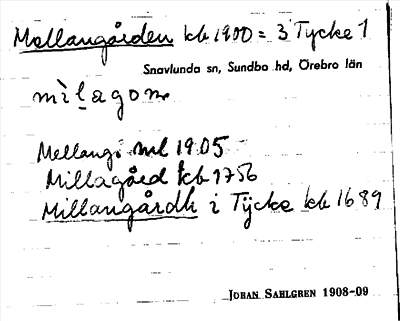 Mellangården kb 1900 = 3 Tycke 1
Snavlunda sn, Sundbo hd, Örebro län
mìlagoɳ
Mellangå ml 1905
Millagård kb 1756
Millangårdh i Tÿcke kb 1689
JOHAN SAHLGREN 1908-09